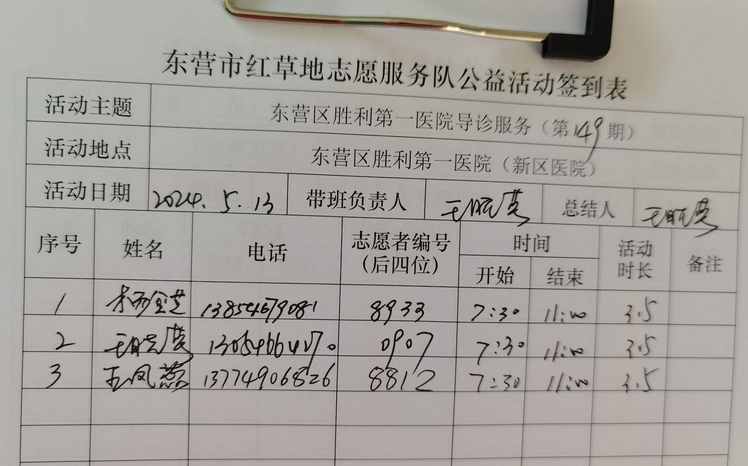 东营市红草地志愿服务队公益活动签到表
活动主题 东营区胜利第一医院导诊服务（第149期）
活动地点 东营区胜利第一医院（新区医院）
活动日期 2024.5.13 带班负责人 王晓英 总结人 王晓英
序号 姓名 电话 志愿者编号（后四位） 时间 活动时长 备注
开始 结束
1 13854679081 8933 7:30 11:00 3.5
2 王晓英 13054664270 0907 7:30 11:00 3.5
3 王凤蕊 13774906826 8812 7:30 11:00 3.5